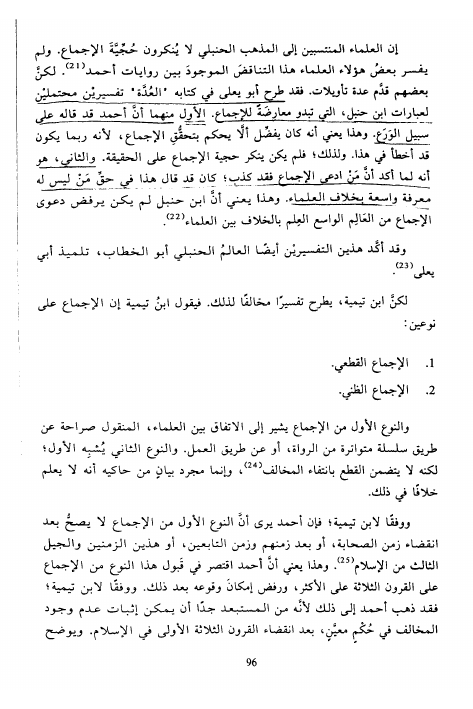 إن العلماء المنتسبين إلى المذهب الحنبلي لا يُنكرون حُجِّيَّةَ الإجماع. ولم
يفسر بعضُ هؤلاء العلماء هذا التناقضَ الموجودَ بين روايات أحمد(21). لكنَّ
بعضهم قدَّم عدة تأويلات. فقد طرح أبو يعلى في كتابه "العُدَّة" تفسيريْن محتمليْن
لعبارات ابن حنبل، التي تبدو معارضةً للإجماع. الأول منهما أنَّ أحمد قد قاله على
سبيل الوَرَع. وهذا يعني أنه كان يفضِّل ألَّا يحكم بتحقُّقِ الإجماع، لأنه ربما يكون
قد أخطأ في هذا. ولذلك؛ فلم يكن ينكر حجية الإجماع على الحقيقة. والثاني، هو
أنه لما أكد أنَّ مَنْ ادعى الإجماع فقد كذب؛ كان قد قال هذا في حقِّ مَنْ ليس له
معرفة واسعة بخلاف العلماء. وهذا يعني أنَّ ابن حنبل لم يكن يرفض دعوى
الإجماع من العَالِم الواسع العِلم بالخلاف بين العلماء(22).
وقد أكَّد هذين التفسيريْن أيضًا العالمُ الحنبلي أبو الخطاب، تلميذ أبي
يعلى(23).
لكنَّ ابن تيمية، يطرح تفسيرًا مخالفًا لذلك. فيقول ابنُ تيمية إن الإجماع على
نوعين:
1. الإجماع القطعي.
2. الإجماع الظني.
والنوع الأول من الإجماع يشير إلى الاتفاق بين العلماء، المنقول صراحة عن
طريق سلسلة متواترة من الرواة، أو عن طريق العمل. والنوع الثاني يُشبِه الأول؛
لكنه لا يتضمن القطع بانتفاء المخالف(24)، وإنما مجرد بيانٍ من حاكيه أنه لا يعلم
خلافًا في ذلك.
ووفقًا لابن تيمية؛ فإن أحمد يرى أنَّ النوع الأول من الإجماع لا يصحُّ بعد
انقضاء زمن الصحابة، أو بعد زمنهم وزمن التابعين، أو هذين الزمنين والجيل
الثالث من الإسلام(25). وهذا يعني أنَّ أحمد اقتصر في قَبول هذا النوع من الإجماع
على القرون الثلاثة على الأكثر، ورفض إمكانَ وقوعه بعد ذلك. ووفقًا لابن تيمية؛
فقد ذهب أحمد إلى ذلك لأنَّه من المستبعد جدًا أن يمكن إثبات عدم وجود
المخالف في حُكْمٍ معيَّنٍ، بعد انقضاء القرون الثلاثة الأولى في الإسلام. ويوضح
96